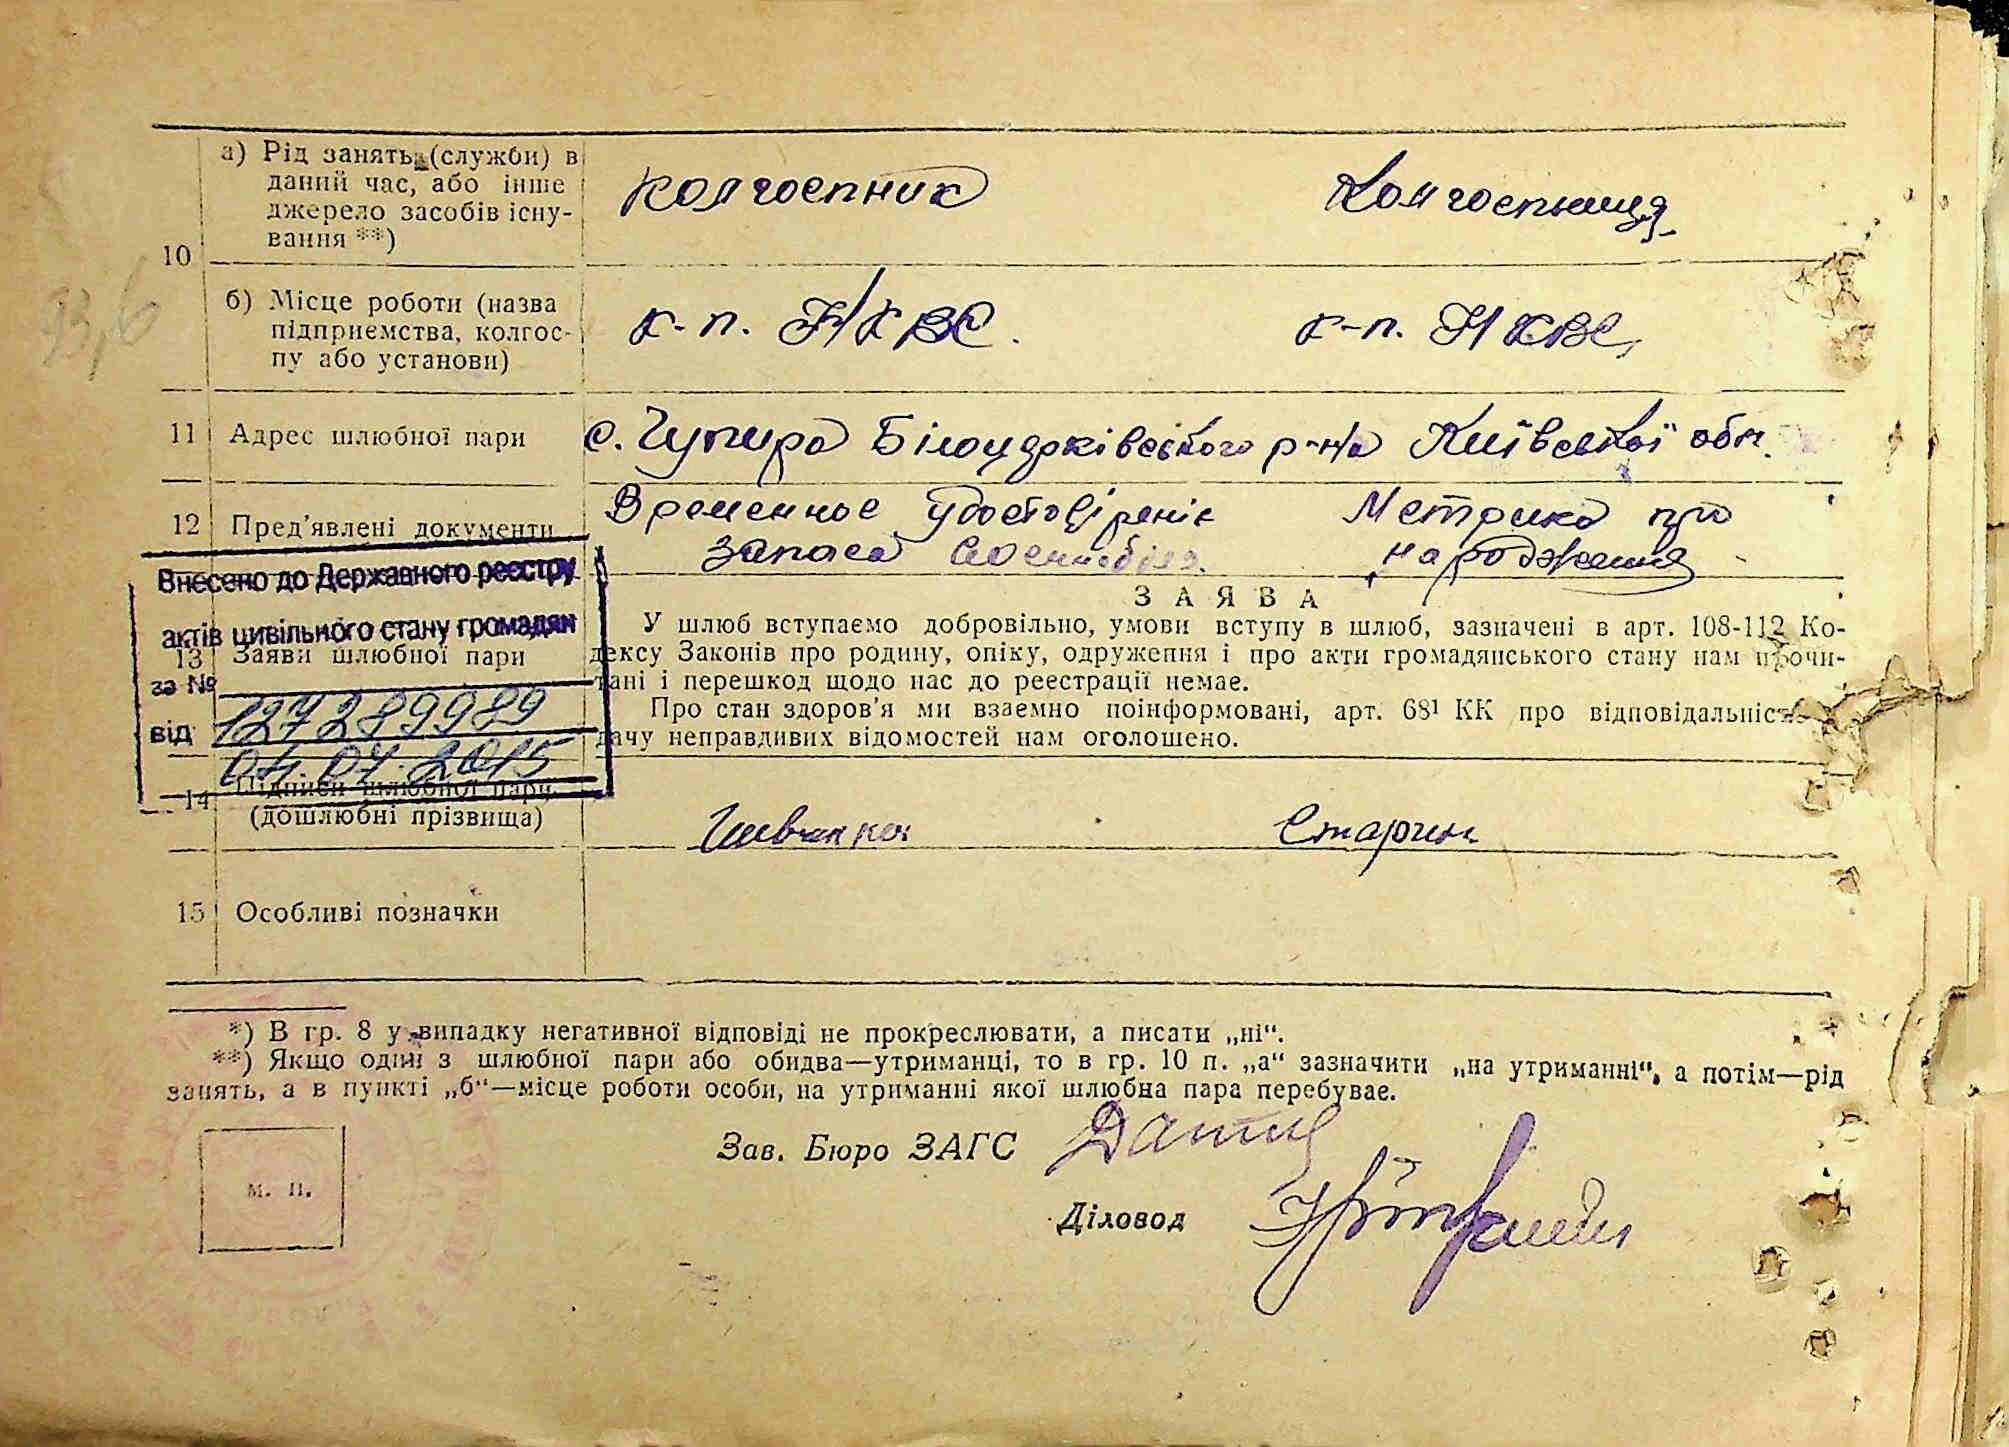 10
а) Рід занять (служби) в
даний час, або інше
джерело засобів існу-
вання **)
колгоспник
Колгоспниця
б) Місце роботи (назва
підприємства, колгос-
пу або установи)
к-п. НКВС.
к-п. НКВС,
11 Адрес шлюбної пари
с. Чупира Білоцерківського р-на Київської обл.
12 Пред'явлені документи
Временное
запаса
Метрика про
народження
Внесено до Державного реєстру
актів цивільного стану громадян
за №
127289989
від
04.07.2015
13 Заяви шлюбної пари
ЗАЯВА
У шлюб вступаємо добровільно, умови вступу в шлюб, зазначені в арт. 108-112 Ко-
дексу Законів про родину, опіку, одруження і про акти громадянського стану нам прочи-
тані і перешкод щодо нас до реєстрації немає.
Про стан здоров'я ми взаємно поінформовані, арт. 68¹ КК про відповідальність
дачу неправдивих відомостей нам оголошено.
14 Підписи шлюбної пари
(дошлюбні прізвища)
15 Особливі позначки
*) В гр. 8 у випадку негативної відповіді не прокреслювати, а писати „ні“.
**) Якщо один з шлюбної пари або обидва—утриманці, то в гр. 10 п. „а“ зазначити „на утриманні“, а потім—рід
занять, а в пункті „б“—місце роботи особи, на утриманні якої шлюбна пара перебуває.
Зав. Бюро ЗАГС
м. п.
Діловод